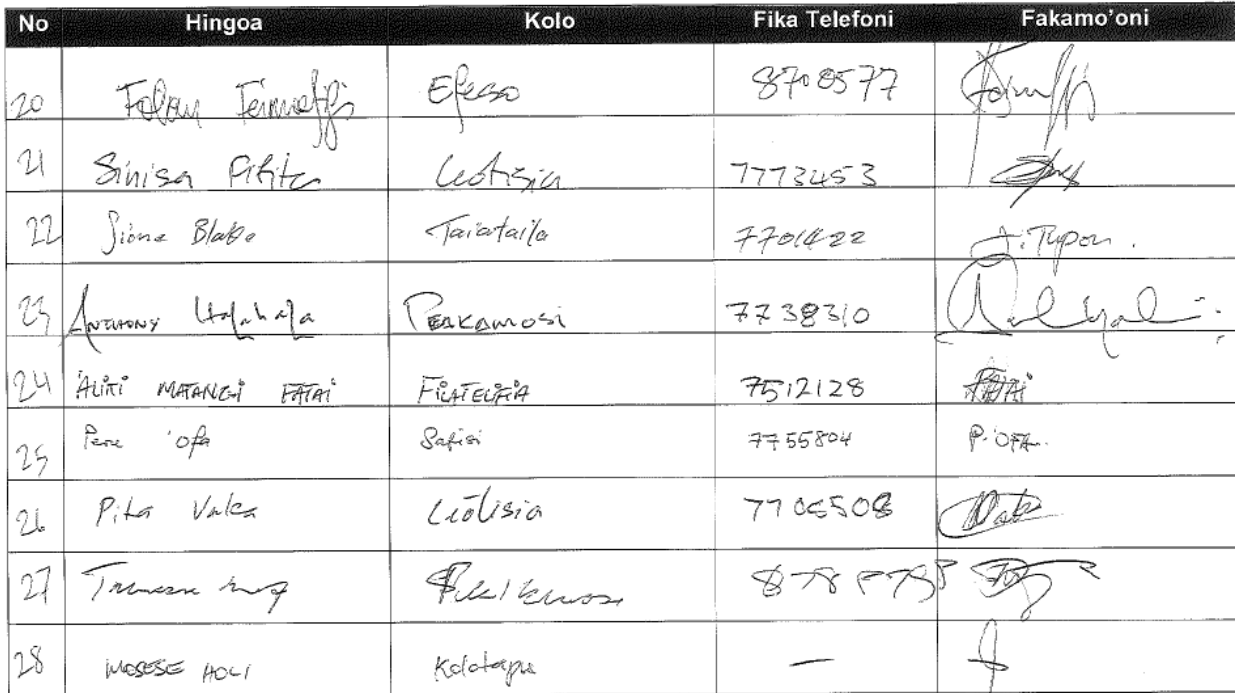 No Hingoa Kolo Fika Telefoni Fakamo'oni
20 Efeso 8708577
21 Sinisa Fifita Leotisia 7773453
22 Sione Blake Taiataila 7701422 J. Tupou.
23 ANTHONY Halahala PEAKAMOSI 7738310
24 'ALITI MATANGI FATAI FILATELIFIA 7512128 FATAI
25 Pene 'Ofa Safisi 7755804 P. OFA.
26 Pita Vaka Leotisia 7706508 Vaka
27
28 MOSESE HOLI Kolotapu —